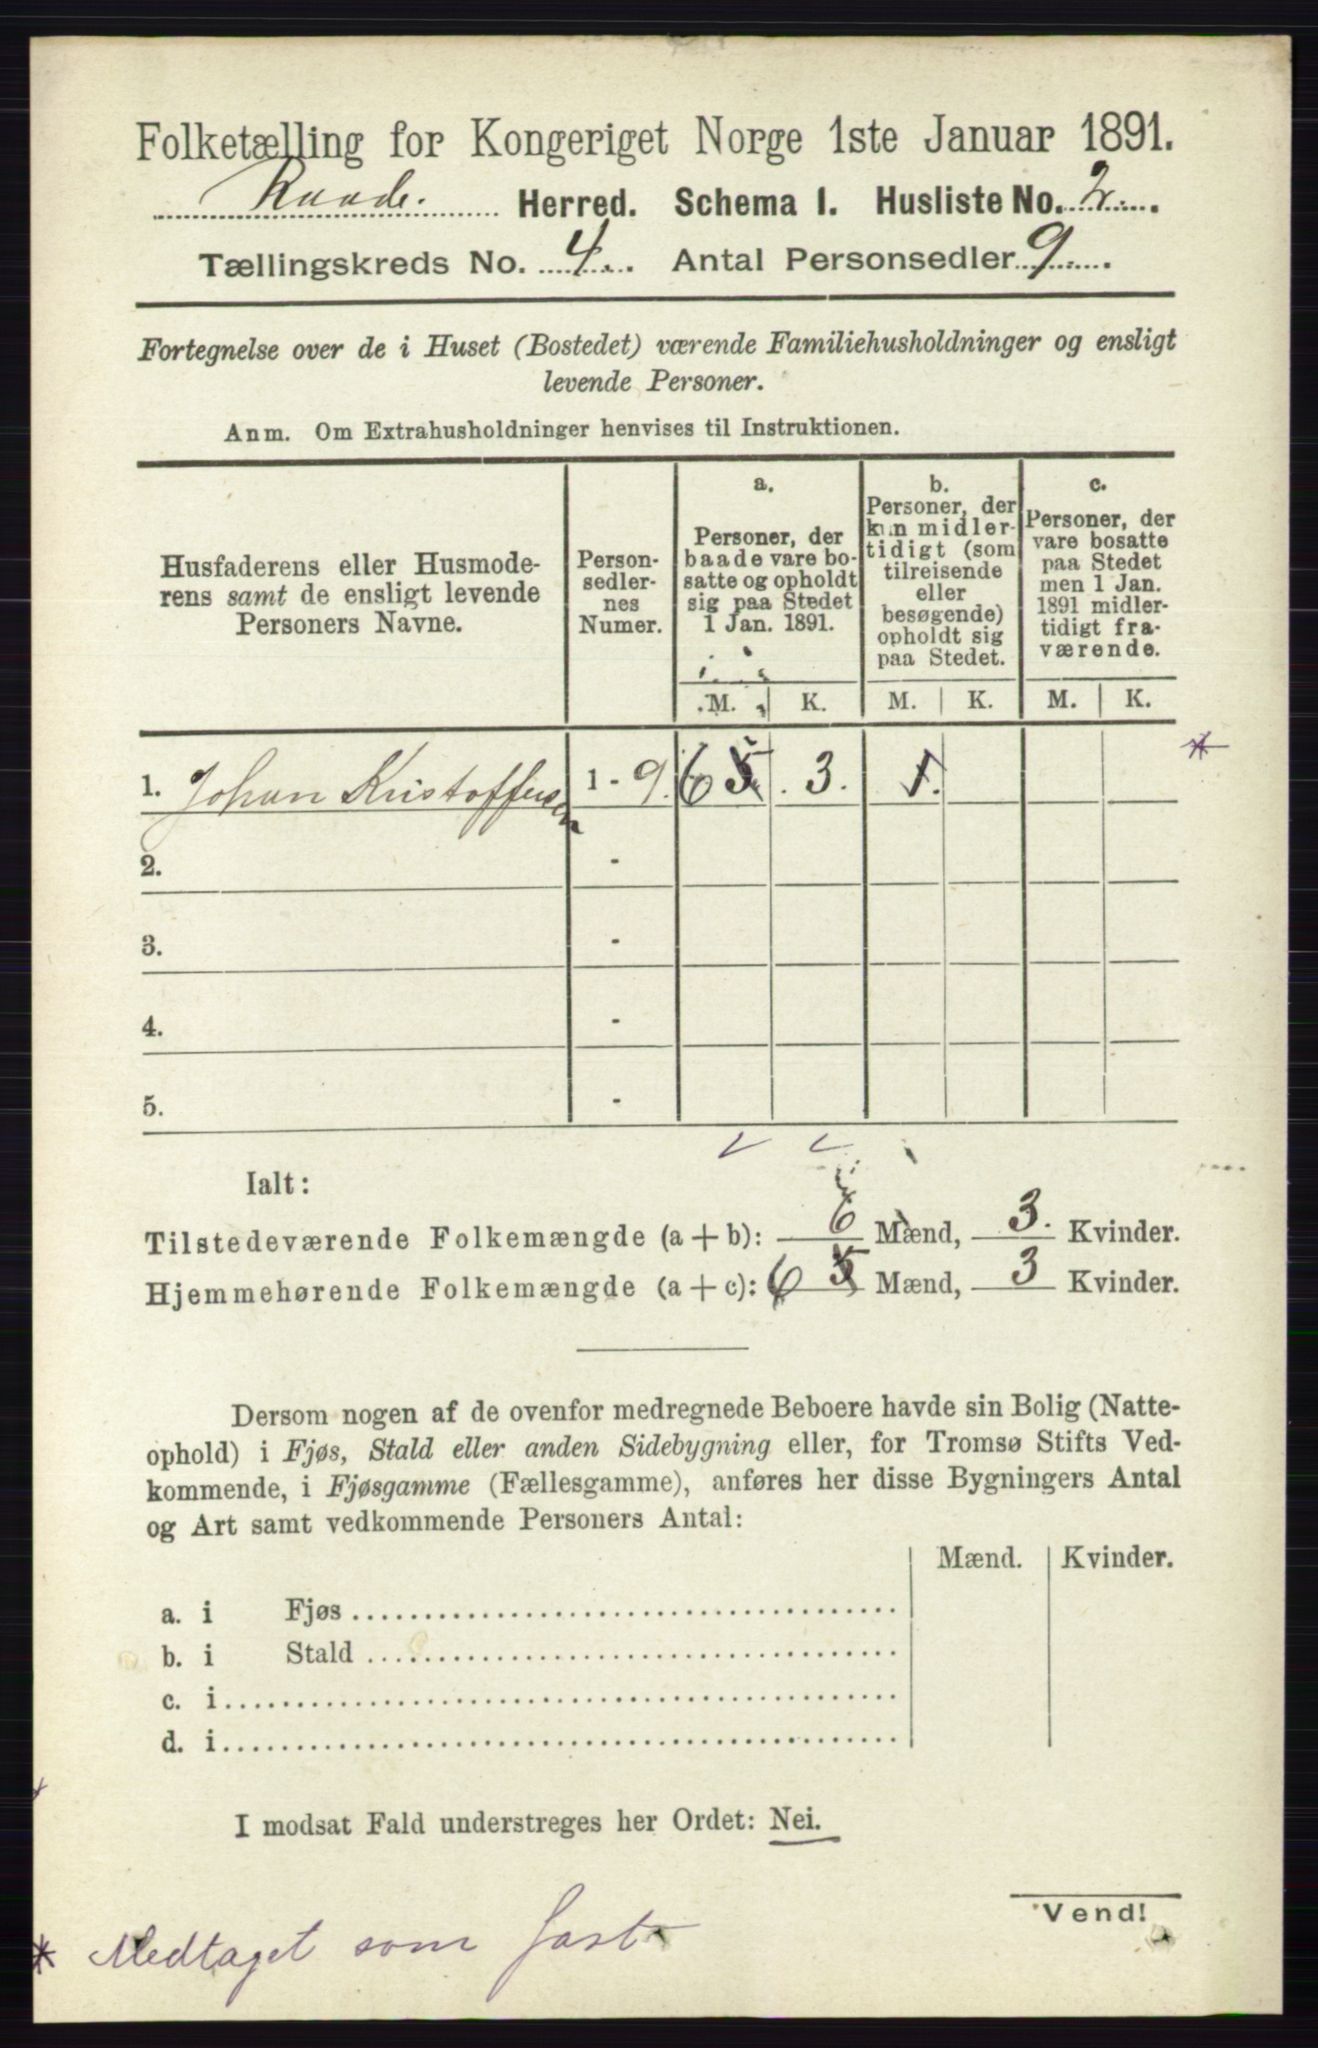 Folketælling for Kongeriget Norge 1ste Januar 1891.
Raade. Herred. Schema 1. Husliste No. 2.
Tællingskreds No. 4. Antal Personsedler 9.
Fortegnelse over de i Huset (Bostedet) værende Familiehusholdninger og ensligt
levende Personer.
Anm. Om Extrahusholdninger henvises til Instruktionen.
Husfaderens eller Husmode-
rens samt de ensligt levende
Personers Navne.
Person-
sedler-
nes
Numer.
a.
Personer, der
baade vare bo-
satte og opholdt
sig paa Stedet
1 Jan. 1891.
b.
Personer, der
kun midler-
tidigt (som
tilreisende
eller
besøgende)
opholdt sig
paa Stedet.
c.
Personer, der
vare bosatte
paa Stedet
men 1 Jan.
1891 midler-
tidigt fra-
værende.
M. K. M. K. M. K.
1. Johan Kristoffersen 1 - 9. 6 5 3. 1. *
2. -
3. -
4. -
5. -
Ialt:
Tilstedeværende Folkemængde (a + b): 6 Mænd, 3. Kvinder.
Hjemmehørende Folkemængde (a + c): 6 5 Mænd, 3 Kvinder.
Dersom nogen af de ovenfor medregnede Beboere havde sin Bolig (Natte-
ophold) i Fjøs, Stald eller anden Sidebygning eller, for Tromsø Stifts Ved-
kommende, i Fjøsgamme (Fællesgamme), anføres her disse Bygningers Antal
og Art samt vedkommende Personers Antal:
Mænd. Kvinder.
a. i Fjøs
b. i Stald
c. i
d. i
I modsat Fald understreges her Ordet: Nei.
Vend!
* Medtaget som fast